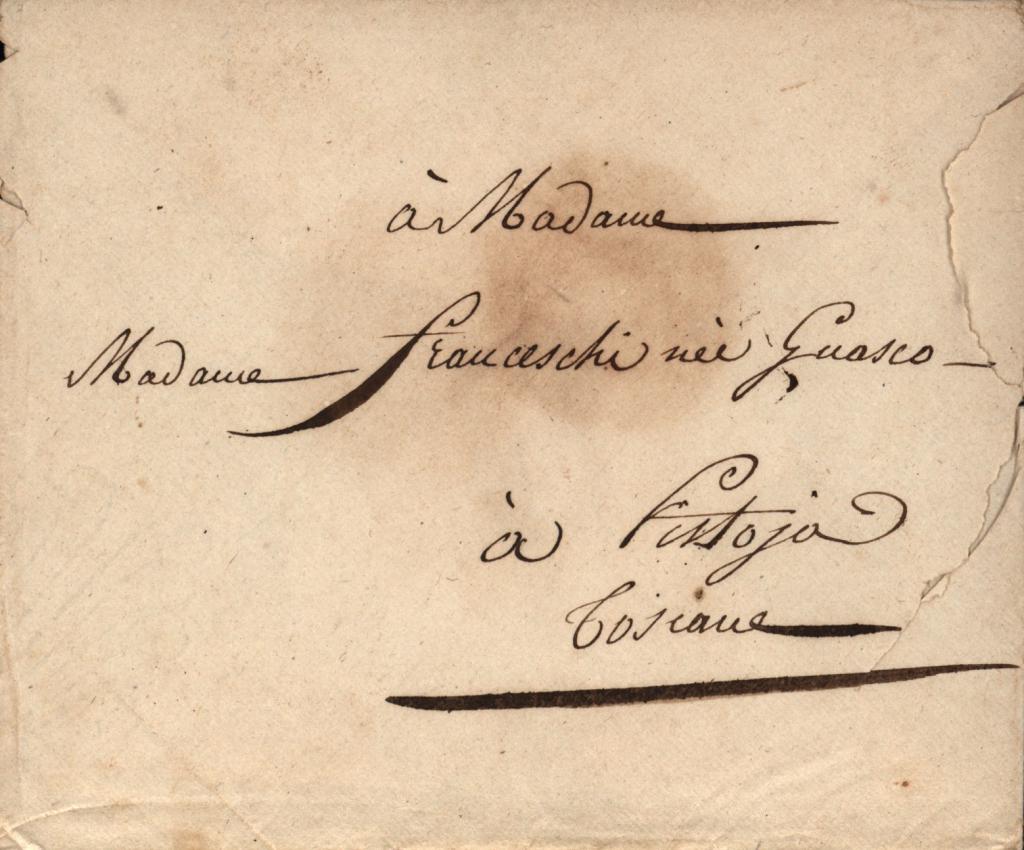 à Madame
Madame Franceschi née Guasco
à Pistoja
Toscane